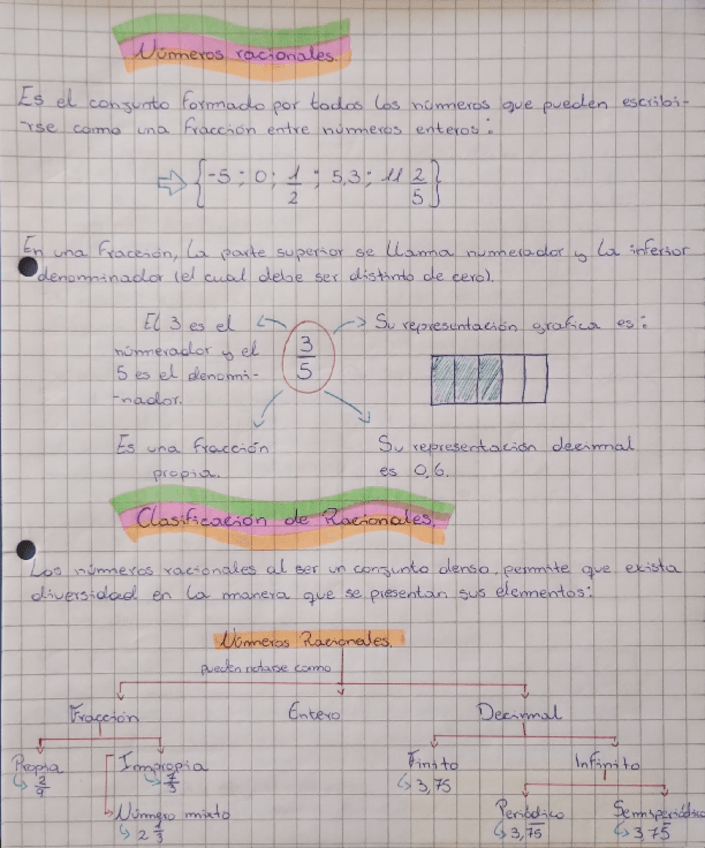 Números racionales.
Es el conjunto formado por todos los números que pueden escribi-
rse como una fracción entre números enteros:
⇨ {-5 ; 0 ; 1/2 ; 5,3 ; 11 2/5}
En una fracción, la parte superior se llama numerador y la inferior
denominador (el cual debe ser distinto de cero).
El 3 es el
númerador y el
5 es el denomi-
-nador.
3/5
Su representación grafica es:
Es una fracción
propia.
Su representación decimal
es 0,6.
Clasificación de Racionales.
Los números racionales al ser un conjunto denso, permite que exista
diversidad en la manera que se presentan sus elementos:
Números Racionales.
pueden notarse como
Fracción Entero Decimal
Propia Impropia Finito Infinito
3,75
Número mixto Periódico Semiperiódico
3,75 3,75